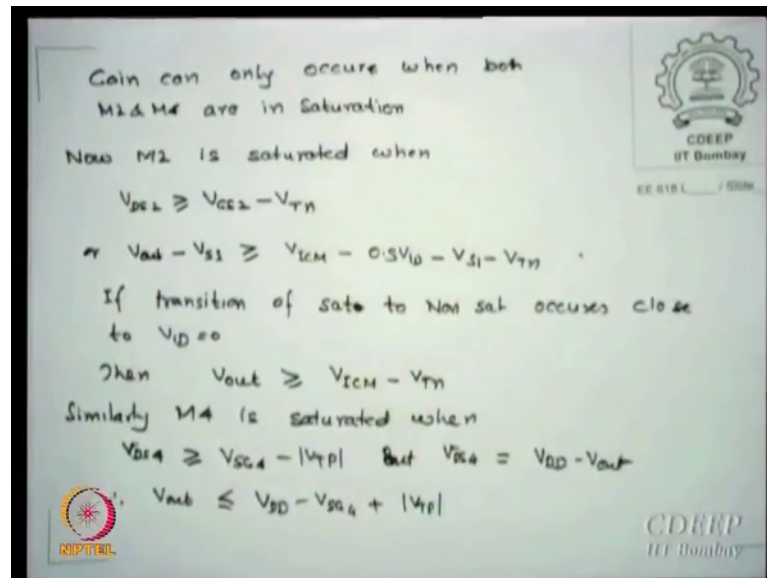 Gain can only occure when both
M2 & M4 are in Saturation
Now M2 is saturated when
V_DS2 ≥ V_GS2 - V_Tn
or Vout - V_S1 ≥ V_ICM - 0.5V_ID - V_S1 - V_Tn
If transition of sat to Non sat occures close
to V_ID = 0
Then Vout ≥ V_ICM - V_Tn
Similarly M4 is saturated when
V_DS4 ≥ V_SG4 - |V_TP| But V_DS4 = V_DD - Vout
∴ Vout ≤ V_DD - V_SG4 + |V_TP|
CDEEP
IIT Bombay
EE 618 L / Slide
NPTEL
CDEEP
IIT Bombay